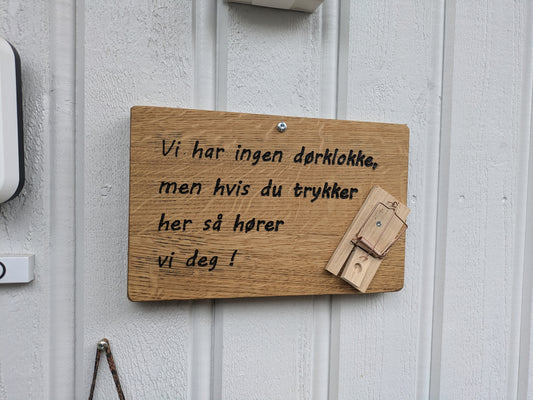 Vi har ingen dørklokke,
men hvis du trykker
her så hører
vi deg !